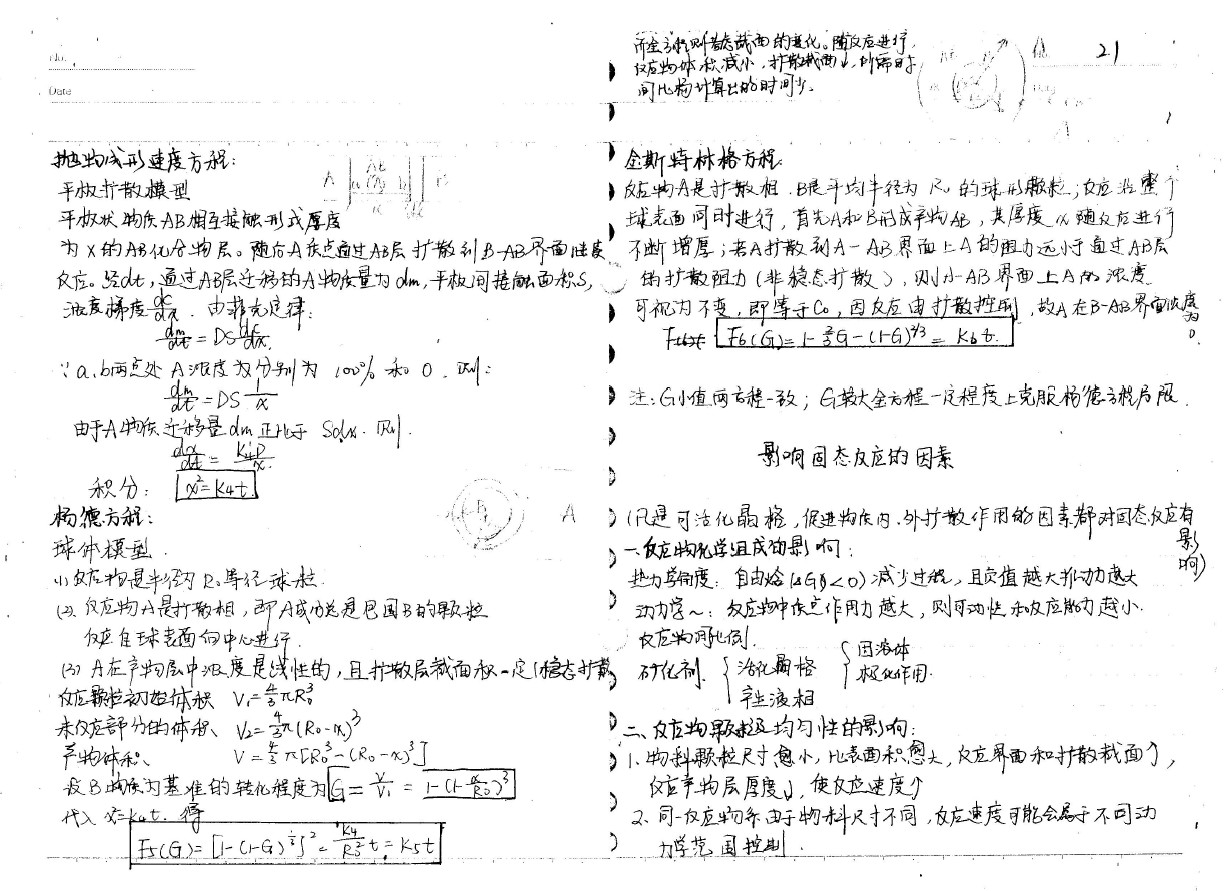 No.
Date
抛物线形速度方程:
平板扩散模型
平板状物质AB相互接触形式厚度
为x的AB化合物层。随后A质点通过AB层扩散到B-AB界面继续
反应。经dt,通过AB层迁移的A物质量为dm,平板间接触面积S,
浓度梯度dc/dx. 由菲克定律:
dm/dt = DS dc/dx.
∵a.b两点处A浓度为分别为100%和0. 则:
dm/dt = DS 1/x
由于A物质迁移量dm正比于Sdx. 则.
dx/dt = K'4D/x.
积分: x²=K4t.
杨德方程:
球体模型.
(1) 反应物是半径为R0等径球粒.
(2). 反应物A是扩散相,即A成份总是包围B的颗粒
反应自球表面向中心进行.
(3) A在产物层中浓度是线性的,且扩散层截面积一定(稳态扩散
反应颗粒初始体积 V1=4/3πR0³
未反应部分的体积 V2=4/3π(R0-x)³
产物体积 V=4/3π[R0³-(R0-x)³]
设B物质为基准的转化程度为G=V/V1=1-(1-x/R0)³
代入x²=K4t. 得
F5(G)=[1-(1-G)^1/3]²=K4/R0² t=K5t
21
而金方程则考虑截面的变化。随反应进行,
反应物体积减小,扩散截面↓,所需时
间比杨计算出的时间少。
金斯特林格方程:
反应物A是扩散相.B是平均半径为R0的球形颗粒;反应沿整个
球表面同时进行,首先A和B形成产物AB,其厚度x随反应进行
不断增厚;若A扩散到A-AB界面上A的阻力远小于通过AB层
的扩散阻力(非稳态扩散),则A-AB界面上A的浓度
可视为不变,即等于C0,因反应由扩散控制,故A在B-AB界面浓度为0.
F6(G)=1-2/3G-(1-G)^2/3=K6t.
注:G小值两方程一致;G较大金方程一定程度上克服杨德方程局限.
影响固态反应的因素
(凡是可活化晶格,促进物质内.外扩散作用的因素都对固态反应有影响)
一.反应物化学组成的影响:
热力学角度:自由焓(ΔG<0)减少过程,且负值越大推动力越大
动力学~:反应物中质点作用力越大,则可动性和反应能力越小.
反应物间比例.
矿化剂. { 活化晶格 { 固溶体
极化作用.
产生液相
二、反应物颗粒及均匀性的影响:
1.物料颗粒尺寸愈小,比表面积愈大,反应界面和扩散截面↑,
反应产物层厚度↓,使反应速度↑
2.同一反应物系由于物料尺寸不同,反应速度可能会属于不同动
力学范围控制.